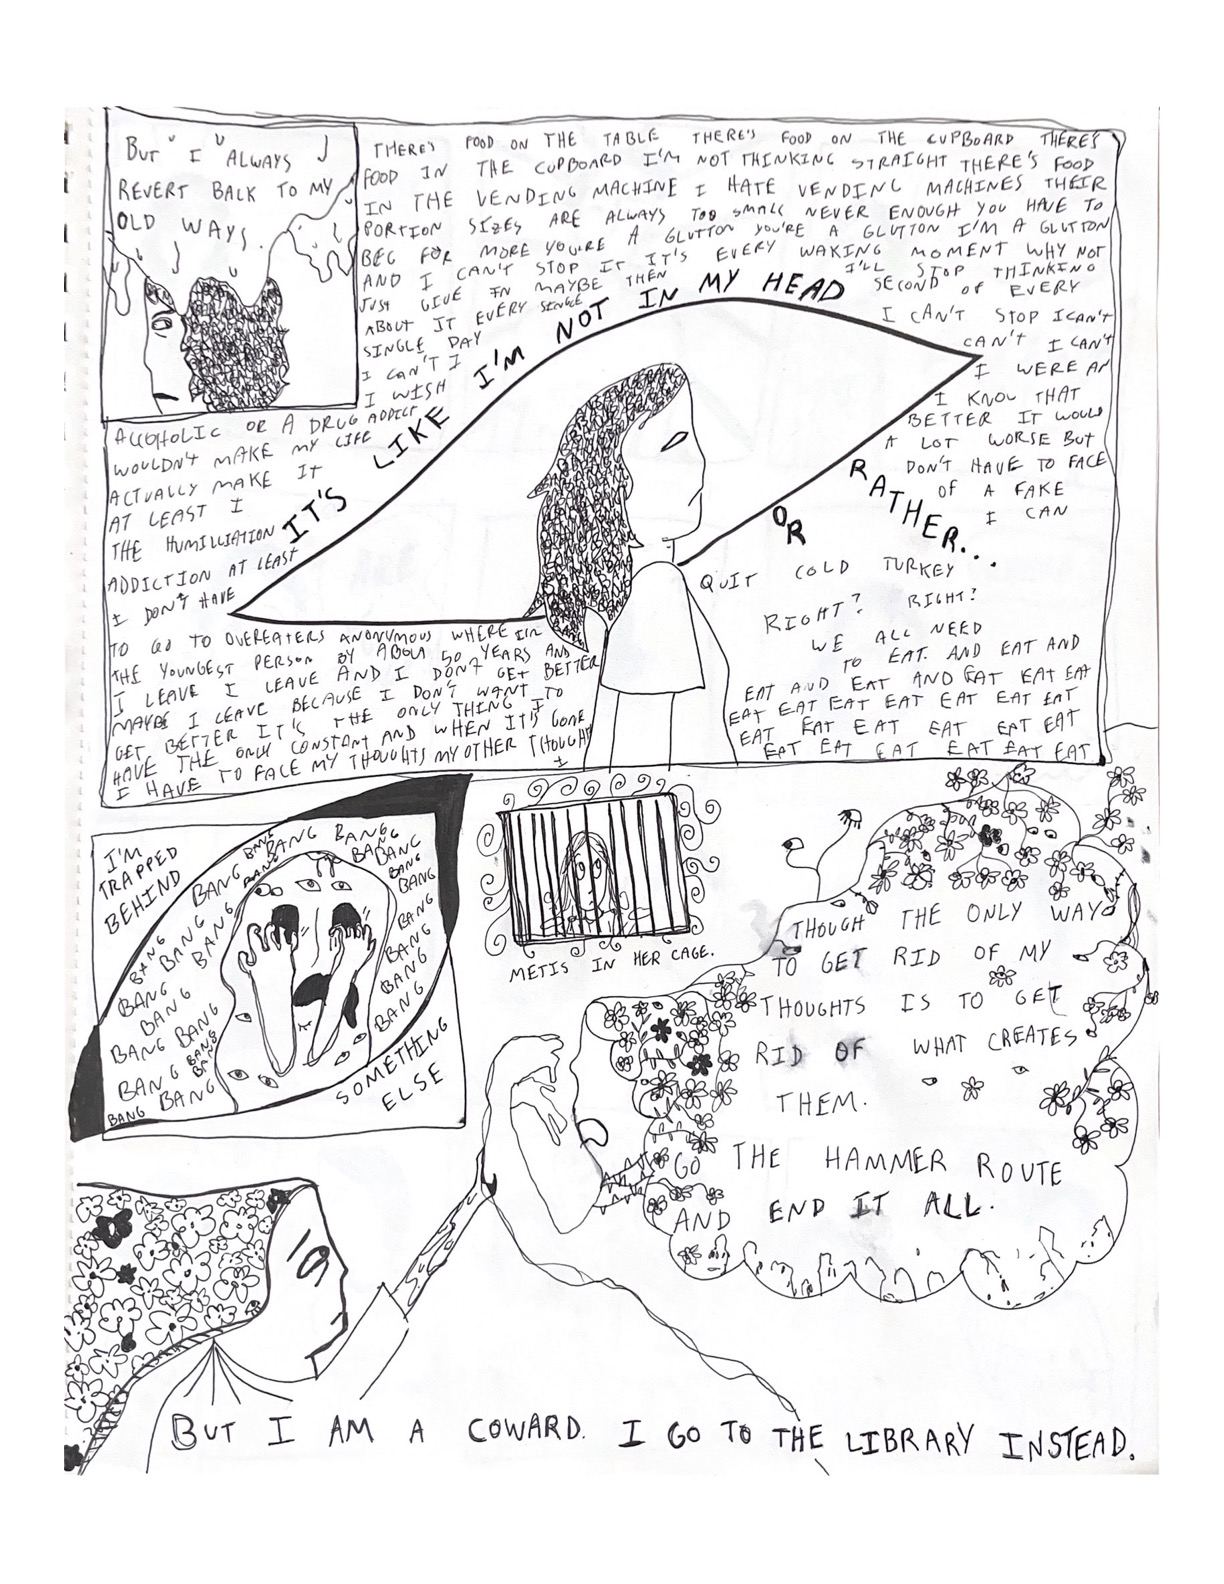 BUT I ALWAYS
REVERT BACK TO MY
OLD WAYS.
THERE'S FOOD ON THE TABLE THERE'S FOOD ON THE CUPBOARD THERE'S
FOOD IN THE CUPBOARD I'M NOT THINKING STRAIGHT THERE'S FOOD
IN THE VENDING MACHINE I HATE VENDING MACHINES THEIR
PORTION SIZES ARE ALWAYS TOO SMALL NEVER ENOUGH YOU HAVE TO
BEG FOR MORE YOU'RE A GLUTTON YOU'RE A GLUTTON I'M A GLUTTON
AND I CAN'T STOP IT IT'S EVERY WAKING MOMENT WHY NOT
JUST GIVE IN MAYBE THEN I'LL STOP THINKING
ABOUT IT EVERY SINGE SECOND OF EVERY
SINGLE DAY I CAN'T STOP I CAN'T
I CAN'T I CAN'T I CAN'T
I WISH I WERE AN
ALCOHOLIC OR A DRUG ADDICT I KNOW THAT
WOULDN'T MAKE MY LIFE BETTER IT WOULD
ACTUALLY MAKE IT A LOT WORSE BUT
AT LEAST I DON'T HAVE TO FACE
THE HUMILLIATION OF A FAKE
ADDICTION AT LEAST I CAN
I DON'T HAVE QUIT COLD TURKEY
RIGHT? RIGHT?
TO GO TO OVEREATERS ANONYMOUS WHERE I'M
THE YOUNGEST PERSON BY ABOUT 50 YEARS AND
I LEAVE I LEAVE AND I DON'T GET BETTER
MAYBE I LEAVE BECAUSE I DON'T WANT TO
GET BETTER IT'S THE ONLY THING I
HAVE THE ONLY CONSTANT AND WHEN IT'S GONE
I HAVE TO FACE MY THOUGHTS MY OTHER THOUGHTS
I
WE ALL NEED
TO EAT. AND EAT AND
EAT AND EAT AND EAT EAT EAT
EAT EAT EAT EAT EAT EAT EAT
EAT EAT EAT EAT EAT EAT
EAT EAT EAT EAT EAT EAT
IT'S LIKE I'M NOT IN MY HEAD
OR RATHER...
I'M
TRAPPED
BEHIND
BANG BANG BANG
BANG BANG BANG BANG
BANG BANG
BANG BANG
BANG BANG
BANG BANG
BANG BANG
BANG BANG
BANG BANG
BANG BANG
BANG BANG
BANG BANG
SOMETHING
ELSE
METIS IN HER CAGE.
THOUGH THE ONLY WAY
TO GET RID OF MY
THOUGHTS IS TO GET
RID OF WHAT CREATES
THEM.
GO THE HAMMER ROUTE
AND END IT ALL.
BUT I AM A COWARD. I GO TO THE LIBRARY INSTEAD.